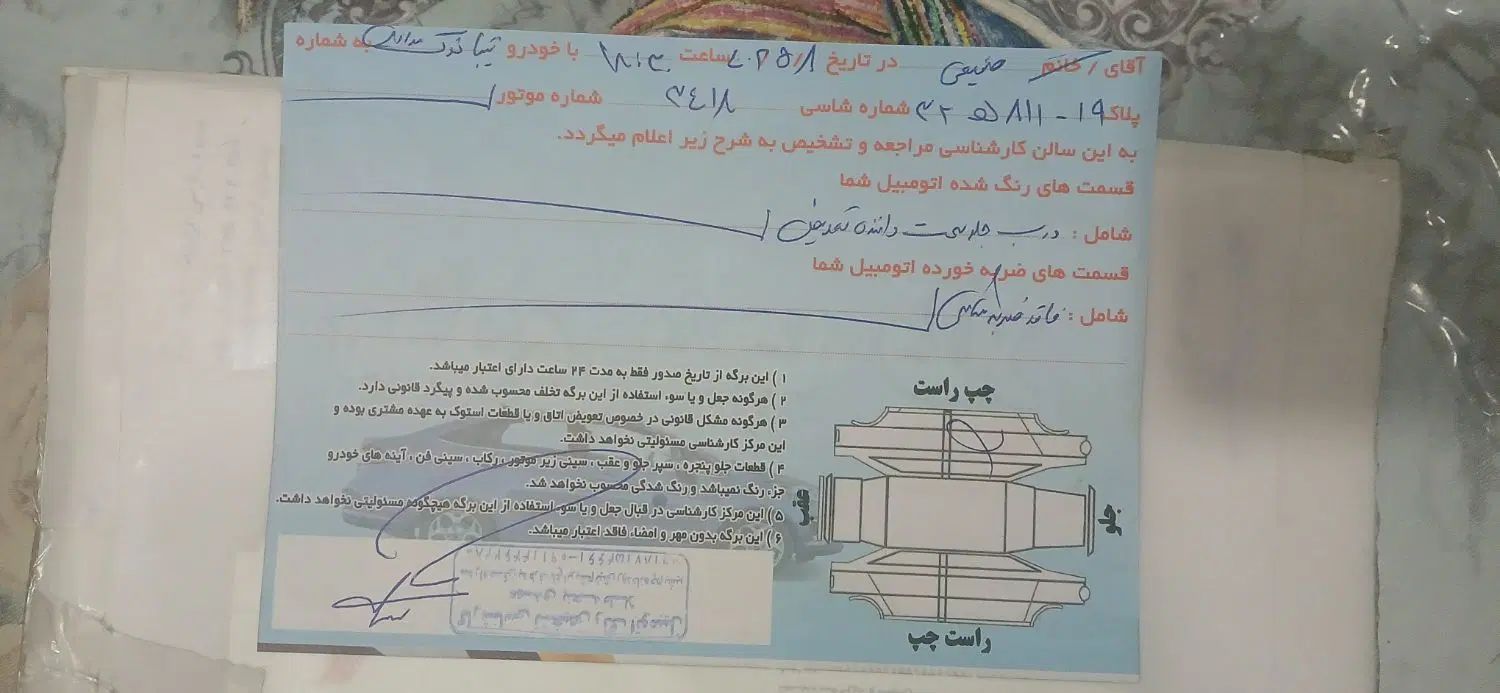 آقای / خانم در تاریخ ساعت ۱۸:۳۰ با خودرو تیبا به شماره
پلاک ۱۹ - ۸۱۱ ه ۳۲ شماره شاسی ۳۴۱۸ شماره موتور
به این سالن کارشناسی مراجعه و تشخیص به شرح زیر اعلام میگردد.
قسمت های رنگ شده اتومبیل شما
شامل : درب جلو سمت راننده تعویض
قسمت های ضربه خورده اتومبیل شما
شامل : فاقد ضربه شاسی
۱ ) این برگه از تاریخ صدور فقط به مدت ۲۴ ساعت دارای اعتبار میباشد.
۲ ) هرگونه جعل و یا سوء استفاده از این برگه تخلف محسوب شده و پیگرد قانونی دارد.
۳ ) هرگونه مشکل قانونی در خصوص تعویض اتاق و یا قطعات استوک به عهده مشتری بوده و
این مرکز کارشناسی مسئولیتی نخواهد داشت.
۴ ) قطعات جلو پنجره ، سپر جلو و عقب ، سینی زیر موتور ، رکاب ، سینی فن ، آینه های خودرو
جزء رنگ نمیباشد و رنگ شدگی محسوب نخواهد شد.
۵ ) این مرکز کارشناسی در قبال جعل و یا سوء استفاده از این برگه هیچگونه مسئولیتی نخواهد داشت.
۶ ) این برگه بدون مهر و امضاء فاقد اعتبار میباشد.
چپ راست
عقب
جلو
راست چپ
کارشناسی تشخیص رنگ اتومبیل